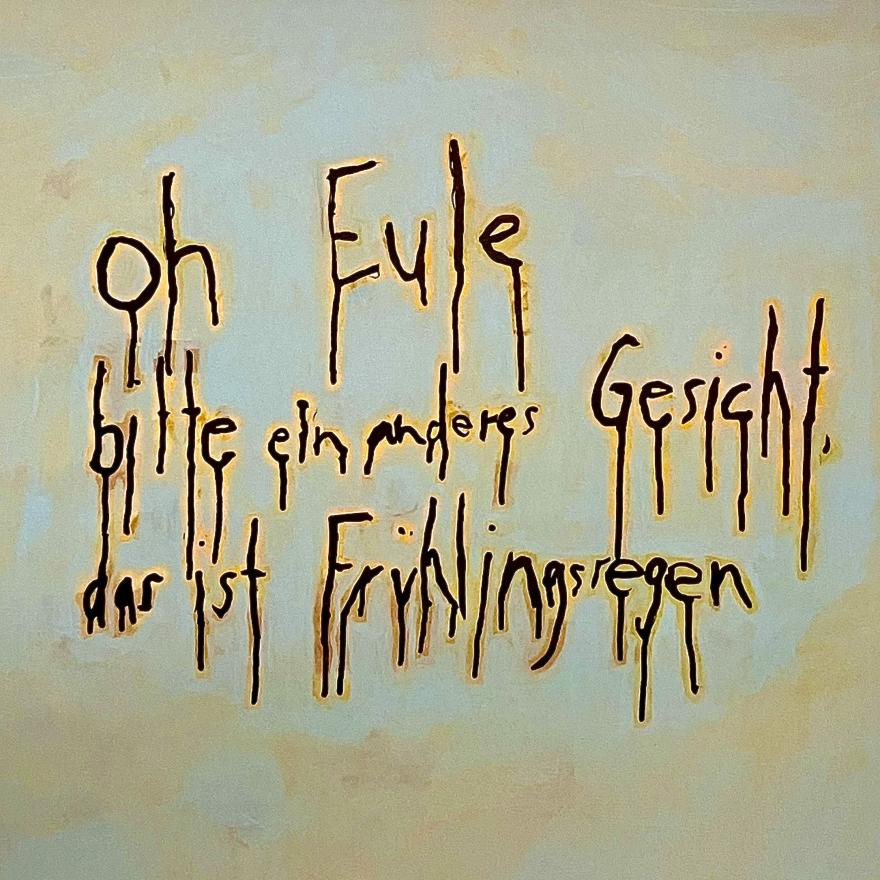 oh Eule
bitte ein anderes Gesicht,
das ist Frühlingsregen